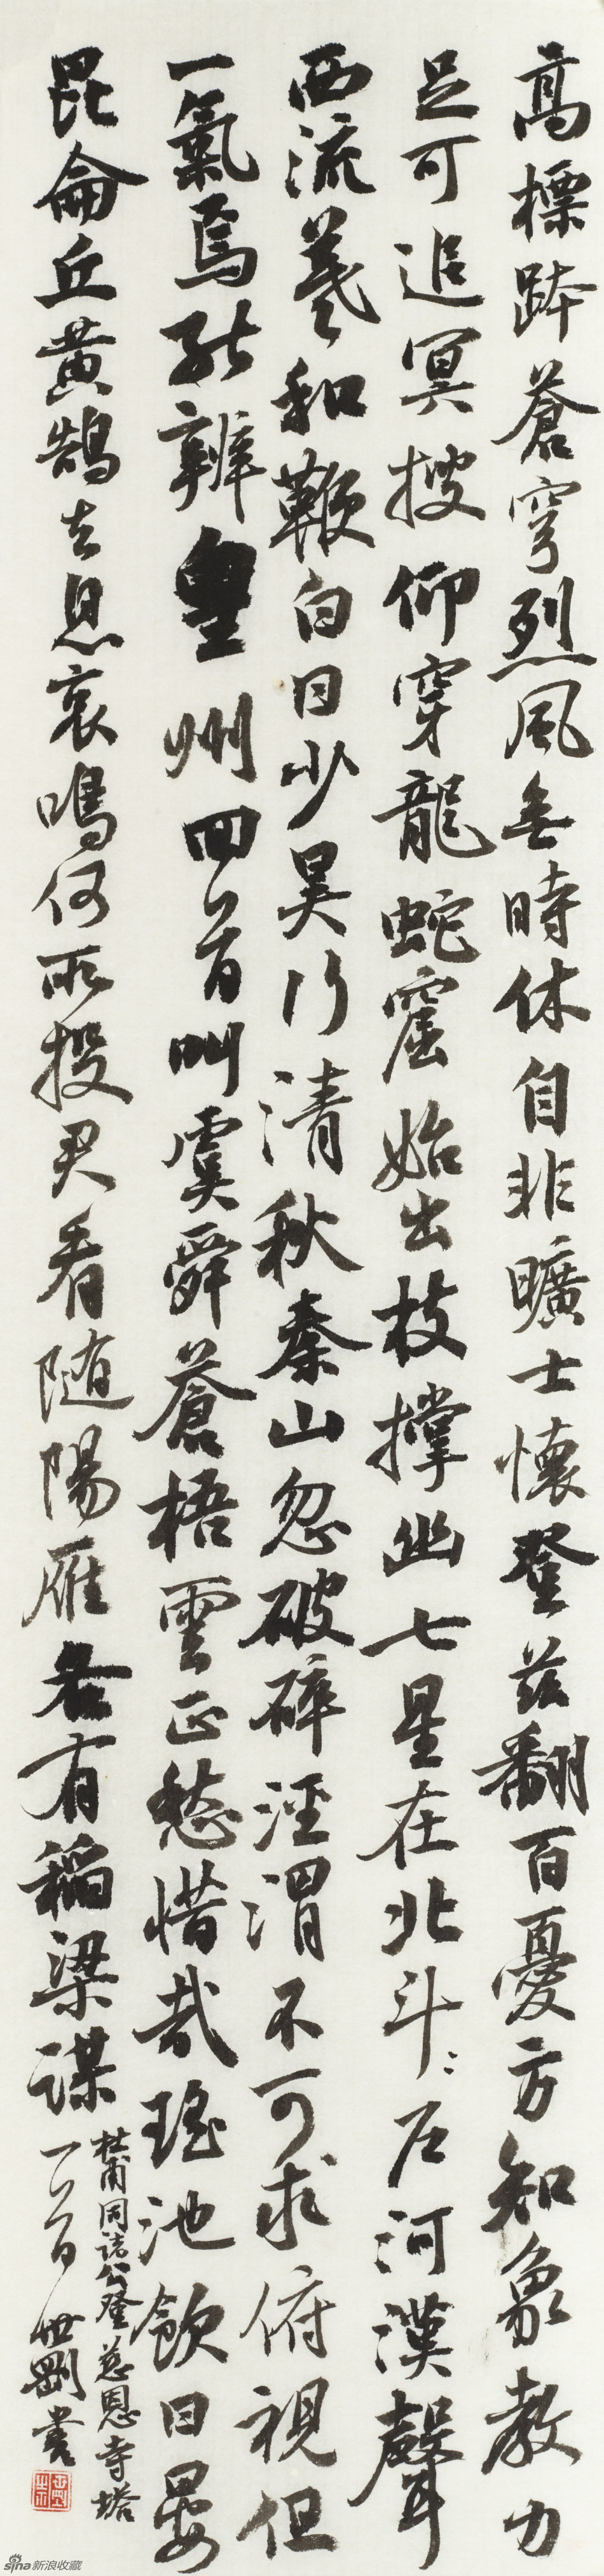 高標跨蒼穹烈風無時休自非曠士懷登茲翻百憂方知象教力
足可追冥搜仰穿龍蛇窟始出枝撐幽七星在北斗戶河漢聲
西流羲和鞭白日少昊行清秋秦山忽破碎涇渭不可求俯視但
一氣焉能辨皇州回首叫虞舜蒼梧雲正愁惜哉瑤池飲日晏
昆侖丘黃鵠去息哀鳴何所投君看随陽雁各有稻梁謀
杜甫同諸公登慈恩寺塔
一首 世剛書
sina新浪收藏